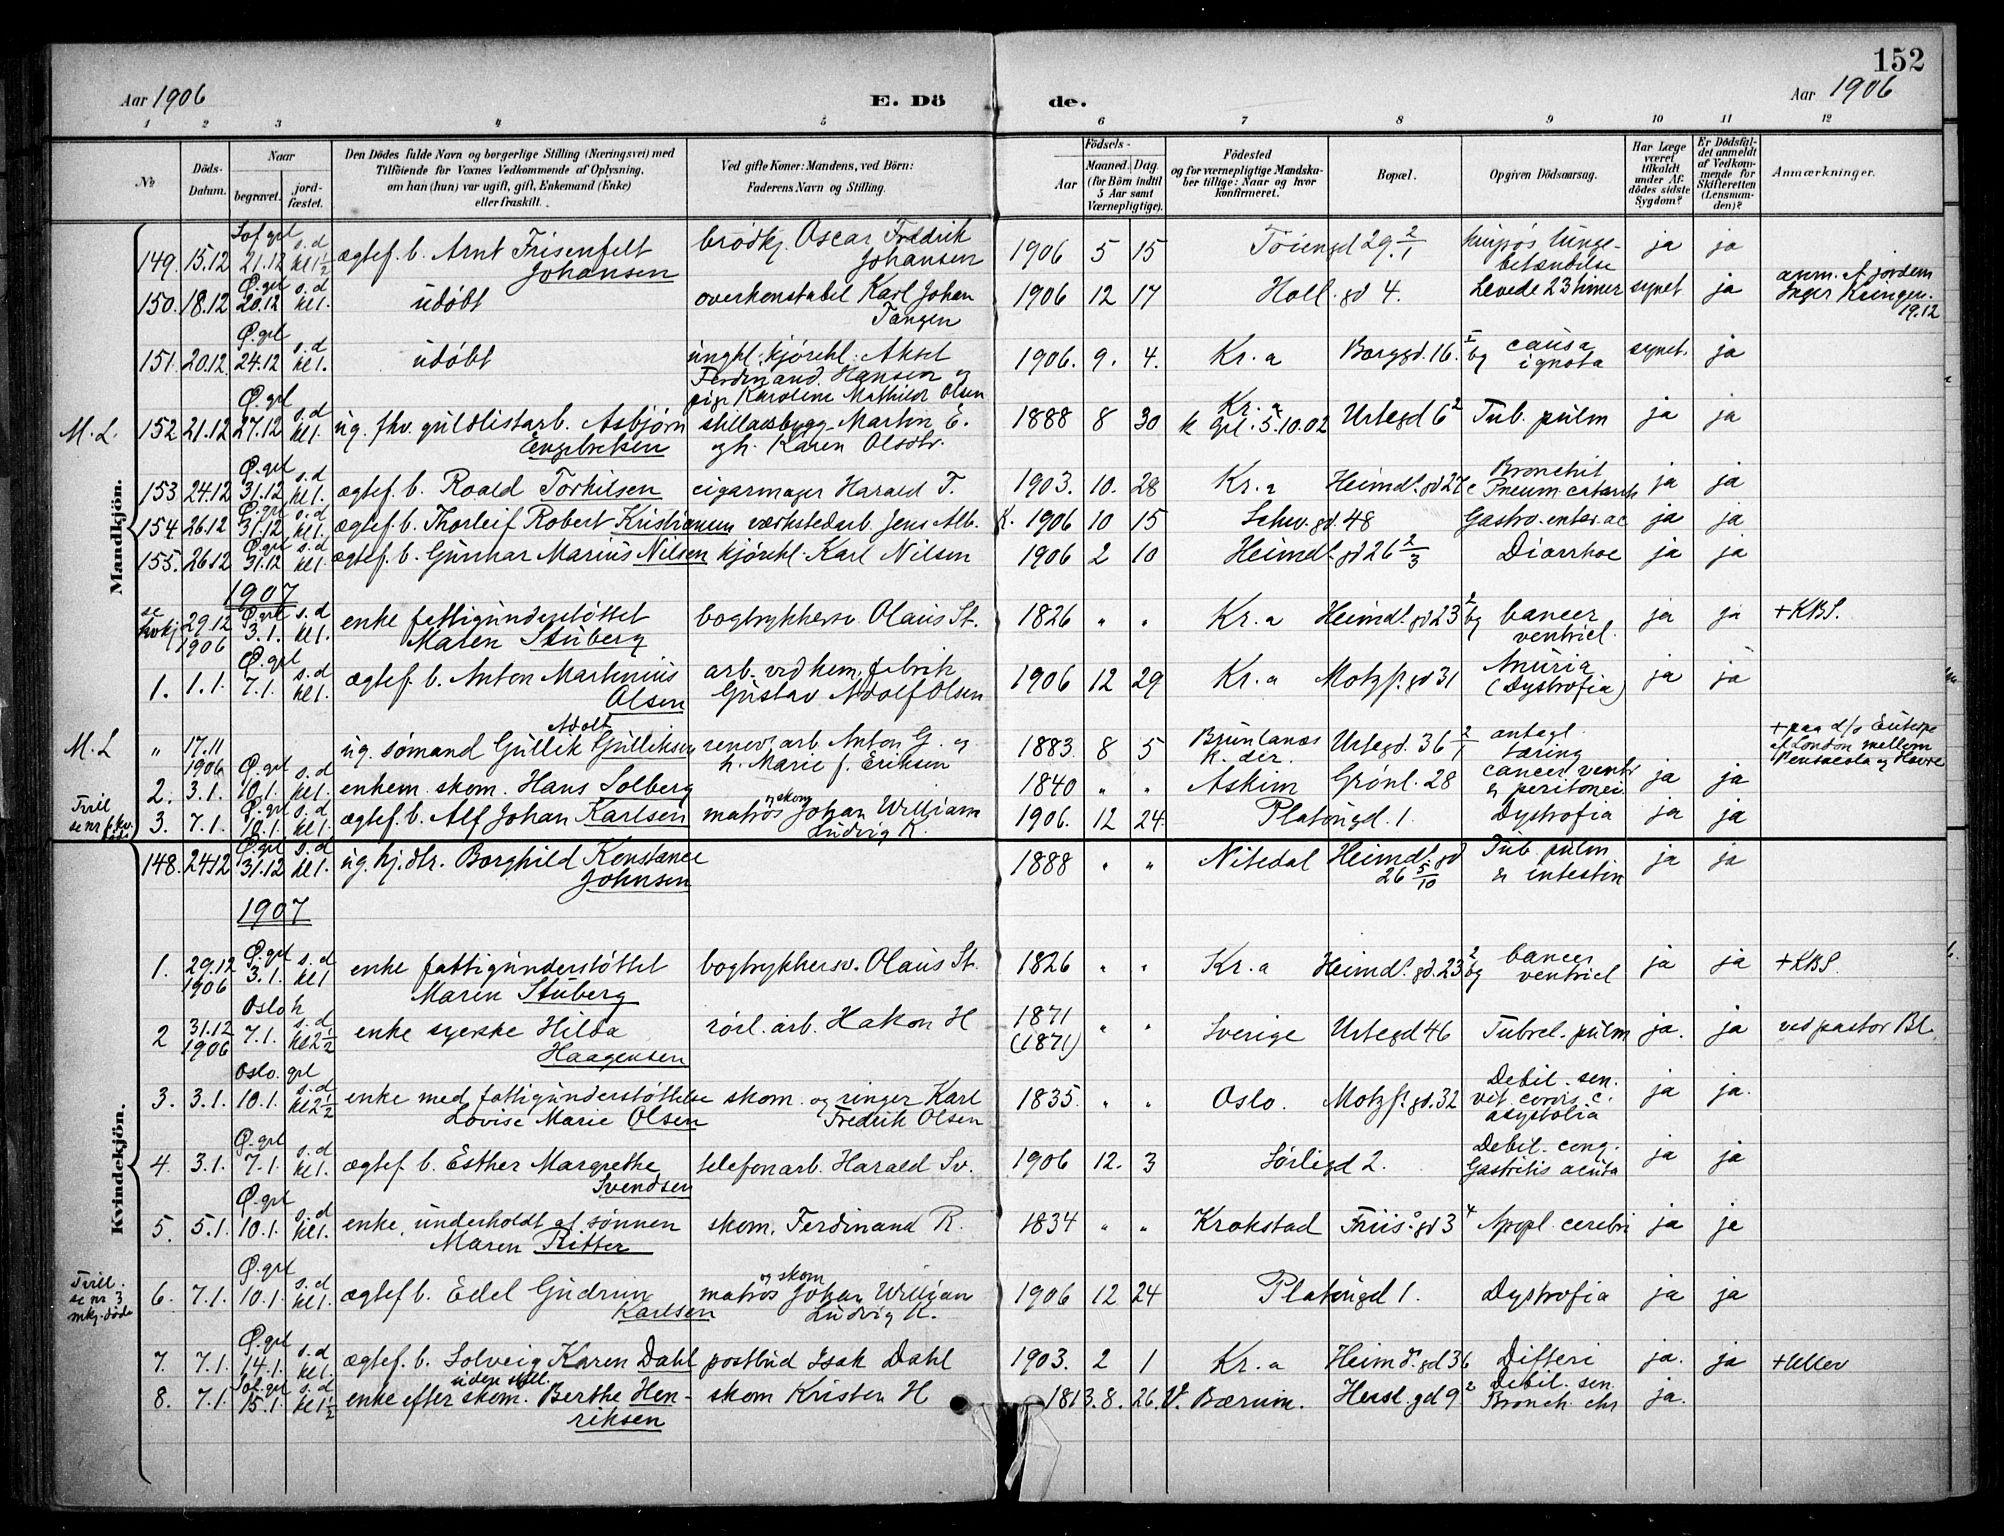 152
Aar 1906
E. Dö de.
Aar 1906
1 2 3 4 5 6 7 8 9 10 11 12
No
Döds-Datum.
Naar
begravet.
jordfæstet.
Den Dödes fulde Navn og borgerlige Stilling (Næringsvei) med Tilföiende for Voxnes Vedkommende af Oplysning, om han (hun) var ugift, gift, Enkemand (Enke) eller fraskilt.
Ved gifte Koner: Mandens, ved Börn: Faderens Navn og Stilling.
Födsels-
Aar
Maaned. Dag.
(for Börn indtil 5 Aar samt Værnepligtige).
Födested og for værnepligtige Mandskaber tillige: Naar og hvor konfirmeret.
Bopæl.
Opgiven Dödsaarsag.
Har Læge været tilkaldt under Afdödes sidste Sygdom?
Er Dödsfaldet anmeldt af Vedkommende for Skifteretten (Lensmanden)?
Anmærkninger.
Mandkjön.
149. 15.12 Sof. grl 21.12 s. d kl 1½ ægtef. b. Arnt Frisenfelt Johansen brödkj. Oscar Fredrik Johansen 1906 5 15 Töiengd 29 2/1 lungebetændelse ja ja
150. 18.12 Ø. grl 20.12 s. d kl 1. udøbt overkonstabel Karl Johan Tangen 1906 12 17 Holl. gd 4. Levede 23 timer synet ja anm. af jordem Inger 19.12
151. 20.12 Ø. grl 24.12 s. d kl 1. udøbt ungkl. kjørekl. Aksel Ferdinand Hansen og pige Karoline Mathilde Olsen 1906. 9. 4. Kr. a Borggd. 16. I bg causa ignota synet. ja
M. L. 152 21.12 Ø. grl 27.12 s. d kl 1. ug. fhv. guldlistarb. Asbjørn Engebretsen stilladsbygg. Martin E. og h. Karen Olsdtr. 1888 8 30 Kr. a k Grl. 5.10.02 Urtegd 6 2 Tub. pulm ja ja
153 24.12 Ø. grl 31.12 s. d kl 1. ægtef. b. Roald Torkilsen cigarmager Harald T. 1903. 10. 28 Kr. a Heimd. gd 27 Bronchit Pneum. catarrh ja ja
154 26.12 Ø. grl 31.12 s. d kl 1. ægtef. b. Thorleif Robert Kristiansen værkstedarb. Jens Alb. K. 1906 10 15 Schw. gd. 48 Gastro-enter. ac ja ja
155. 26.12 Ø. grl 31.12 s. d kl 1. ægtef. b. Gunnar Marius Nilsen kjørekl. Karl Nilsen 1906 2 10 Heimdl. gd 26 2/3 Diarrhoe ja ja
1907
se kvkj. 29.12 1906 Ø. grl 3.1. s. d kl 1. enke fattigunderstøttet Maren Stuberg bogtrykkersv. Olaus St. 1826 " " Kr. a Heimdl. gd 23 2 bg cancer ventricl. ja ja + KBS.
1. 1.1. Ø. grl 7.1. s. d kl 1. ægtef. b. Anton Martinius Olsen arb. ved kem. fabrik Gustav Adolf Olsen 1906 12 29 Kr. a Motzf. gd 31 Anuria (Dystrofia) ja ja
M. L " 17.11 1906 ug. sømand Gullik Adolf Gulliksen renov. arb. Anton G. og h. Marie f. Eriksen 1883. 8 5 Brunlanæs k. der. Urtegd. 36 2/1 antagl. tæring + paa d/s Euterpe af London mellem Pensacola og Havre
2. 3.1. Ø. grl 10.1. s. d kl 1. enkem. skom. Hans Solberg 1840 " " Askim Grönl. 28 cancer ventr & peritonei ja ja
Tvill se nr 6 kv. døde 3. 7.1. Ø. grl 10.1. s. d kl 1. ægtef. b. Alf Johan Karlsen matros og skom Johan William Ludvig K. 1906. 12 24 Platougd. 1 Dystrofia ja ja
Kvindekjön.
148. 24.12 Ø. grl 31.12 s. d kl 1. ug. hj. dtr. Borghild Konstance Johnsen 1888 " " Nitedal Heimdl. gd 26 5/10 Tub. pulm & intestin ja ja
1907
1. 29.12 1906 Ø. grl 3.1. s. d kl 1 enke fattigunderstøttet Maren Stuberg bogtrykkersv. Olaus St. 1826 " " Kr. a Heimdl. gd. 23 2 bg cancer ventricl ja ja + KBS.
2 31.12 1906 Oslo k 7.1. s. d. kl 2½ enke syerske Hilda Haagensen rörl. arb. Hakon H 1871 (1871) " " Sverige Urtegd 46 Tubrcl. pulm ja. ja ved pastor Bl.
3. 3.1. Oslo. grl 10.1. s. d. kl 2½ enke med fattigunderstøttelse Lovise Marie Olsen skom. og ringer Karl Fredrik Olsen 1835. " " Oslo. Motzf. gd. 32 Debil. sen. vit. cordis c. asystolia ja ja.
4. 3.1. Ø. grl 7.1. s. d kl 1. ægtef. b. Esther Margrethe Svendsen telefonarb. Harald Sv. 1906 12. 3 Sørligd 2. Debil. cong. Gastritis acuta ja ja
5. 5.1. Ø. grl 10.1. s. d kl 1. enke, underholdt af sønnen Maren Ritter skom. Ferdinand R. 1834 " " Krakstad Friis' gd 3 4 Apopl. cerebri ja ja
Tvill. se nr 3 mkj. døde 6. 7.1. Ø. grl 10.1. s. d kl 1. ægtef b. Edel Gudrun Karlsen matros og skom Johan William Ludvig K. 1906 12 24 Platougd 1. Dystrofia ja ja
7. 7.1. Ø. grl 14.1. s. d kl 1. ægtef. b. Solveig Karen Dahl postbud Isak Dahl 1903. 2 1 Kr. a Heimdl. gd 36 Difteri ja. ja + Ullev
8. 7.1. Sof. grl 15.1. s. d kl 1½ enke efter skom. uden still. Berthe Henriksen skom Kristen H 1813. 8. 26. V. Bærum. Hersl. gd 9 2 Debil. sen. Bronch. chr ja.